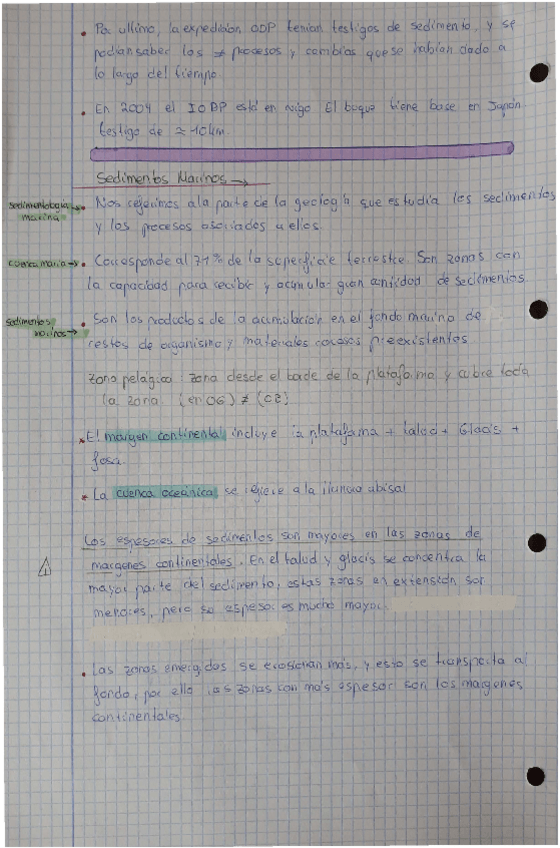 • Por ultimo, la expedision ODP tenian testigos de sedimento, y se
podian saber los ≠ procesos y cambios que se habian dado a
lo largo del tiempo.
• En 2004 el IODP está en vigo. El buque tiene base en Japón
testigo de ≈ 10km.
Sedimentos Marinos →
sedimentología marina → • Nos referimos a la parte de la geología que estudia los sedimentos
y los procesos asociados a ellos.
cuenca marina → • Corresponde al 71% de la superficie terrestre. Son zonas con
la capacidad para recibir y acumular gran cantidad de sedimentos
sedimentos marinos → • Son los productos de la acumulación en el fondo marino de
restos de organismo y materiales rocosos preexistentes.
zona pelágica: zona desde el borde de la plataforma y cubre toda
la zona. (en OG) ≠ (OB)
• El margen continental incluye la plataforma + talud + Glacis +
fosa.
• La cuenca oceánica se refiere a la llanura abisal
Los espesores de sedimentos son mayores en las zonas de
margenes continentales. En el talud y glacis se concentra la
mayor parte del sedimento, estas zonas en extensión son
menores, pero su espesor es mucho mayor.
• Las zonas emergidas se erosionan más, y esto se transporta al
fondo, por ello las zonas con más espesor son los margenes
continentales.